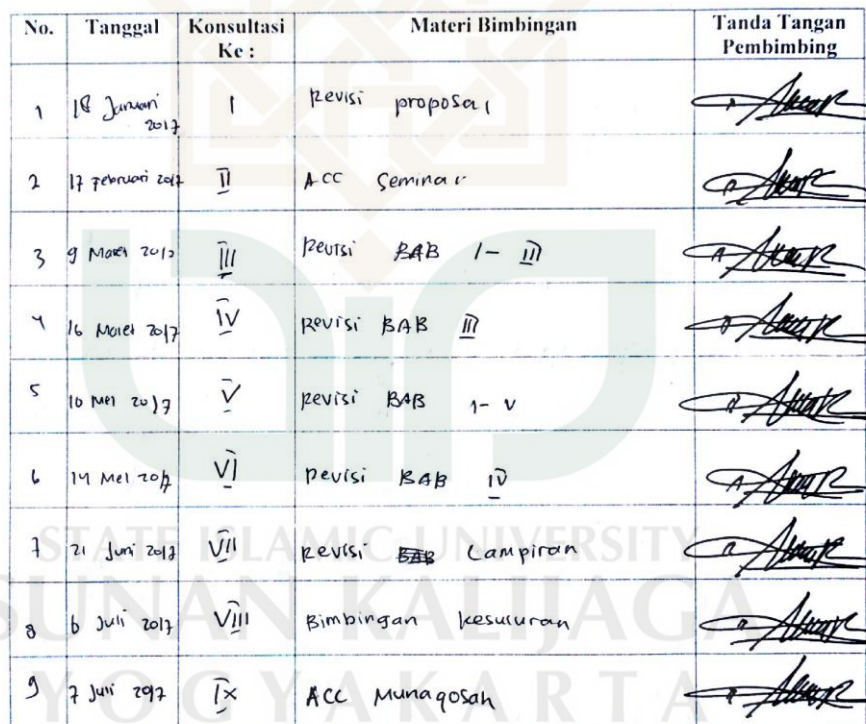 No. Tanggal Konsultasi Ke : Materi Bimbingan Tanda Tangan Pembimbing
1 18 Januari 2017 I Revisi proposal
2 17 Februari 2017 II ACC Seminar
3 9 Maret 2017 III Revisi BAB I - III
4 16 Maret 2017 IV Revisi BAB III
5 10 Mei 2017 V Revisi BAB 1 - V
6 14 Mei 2017 VI Revisi BAB IV
7 21 Juni 2017 VII Revisi Lampiran
8 6 Juli 2017 VIII Bimbingan kesuluran
9 7 Juli 2017 IX ACC Munaqosah
STATE ISLAMIC UNIVERSITY
SUNAN KALIJAGA
YOGYAKARTA